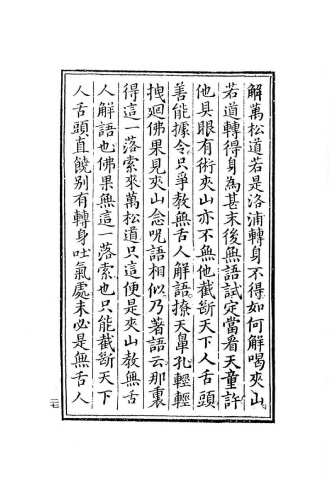 解萬松道若是洛浦轉身不得如何解喝夾山
若道轉得身為甚末後無語試定當看天童許
他具眼有術夾山亦不無他截斷天下人舌頭
善能據令只爭教無舌人解語撩天鼻孔輕輕
拽迴佛果見夾山念呪語相似乃著語云那裏
得這一落索來萬松道只這便是夾山教無舌
人解語也佛果無這一落索也只能截斷天下
人舌頭直饒別有轉身吐氣處未必是無舌人